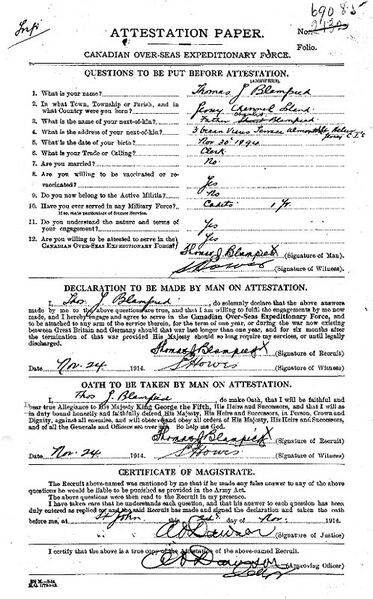 69085
ATTESTATION PAPER.
No.
Folio.
CANADIAN OVER-SEAS EXPEDITIONARY FORCE.
QUESTIONS TO BE PUT BEFORE ATTESTATION.
(ANSWERS)
1. What is your name? Thomas J Blampied
2. In what Town, Township or Parish, and in
what Country were you born? Jersey Channel Island
3. What is the name of your next-of-kin? Father Blampied
4. What is the address of your next-of-kin? 3 Ocean View Terrace
5. What is the date of your birth? Nov 30th 1894
6. What is your Trade or Calling? Clerk
7. Are you married? No
8. Are you willing to be vaccinated or re-
vaccinated? Yes
9. Do you now belong to the Active Militia? No
10. Have you ever served in any Military Force? Cadets 1 yr
If so, state particulars of former Service.
11. Do you understand the nature and terms of
your engagement? Yes
12. Are you willing to be attested to serve in the
CANADIAN OVER-SEAS EXPEDITIONARY FORCE? Yes
Thomas J Blampied (Signature of Man).
(Signature of Witness).
DECLARATION TO BE MADE BY MAN ON ATTESTATION.
I, Thos J Blampied, do solemnly declare that the above answers
made by me to the above questions are true, and that I am willing to fulfil the engagements by me
now made, and I hereby engage and agree to serve in the Canadian Over-Seas Expeditionary Force, and
to be attached to any arm of the service therein, for the term of one year, or during the war now existing
between Great Britain and Germany should that war last longer than one year, and for six months after
the termination of that war provided His Majesty should so long require my services, or until legally
discharged.
Thomas J Blampied (Signature of Recruit)
Date Nov. 24 1914. (Signature of Witness)
OATH TO BE TAKEN BY MAN ON ATTESTATION.
I, Thos J Blampied, do make Oath, that I will be faithful and
bear true Allegiance to His Majesty King George the Fifth, His Heirs and Successors, and that I will as
in duty bound honestly and faithfully defend His Majesty, His Heirs and Successors, in Person, Crown and
Dignity, against all enemies, and will observe and obey all orders of His Majesty, His Heirs and Successors,
and of all the Generals and Officers set over me. So help me God.
Thomas J Blampied (Signature of Recruit)
Date Nov. 24 1914. (Signature of Witness)
CERTIFICATE OF MAGISTRATE.
The Recruit above-named was cautioned by me that if he made any false answer to any of the above
questions he would be liable to be punished as provided in the Army Act.
The above questions were then read to the Recruit in my presence.
I have taken care that he understands each question, and that his answer to each question has been
duly entered as replied to, and the said Recruit has made and signed the declaration and taken the oath
before me, at St John this day of Nov. 1914.
(Signature of Justice)
I certify that the above is a true copy of the Attestation of the above-named Recruit.
(Approving Officer)